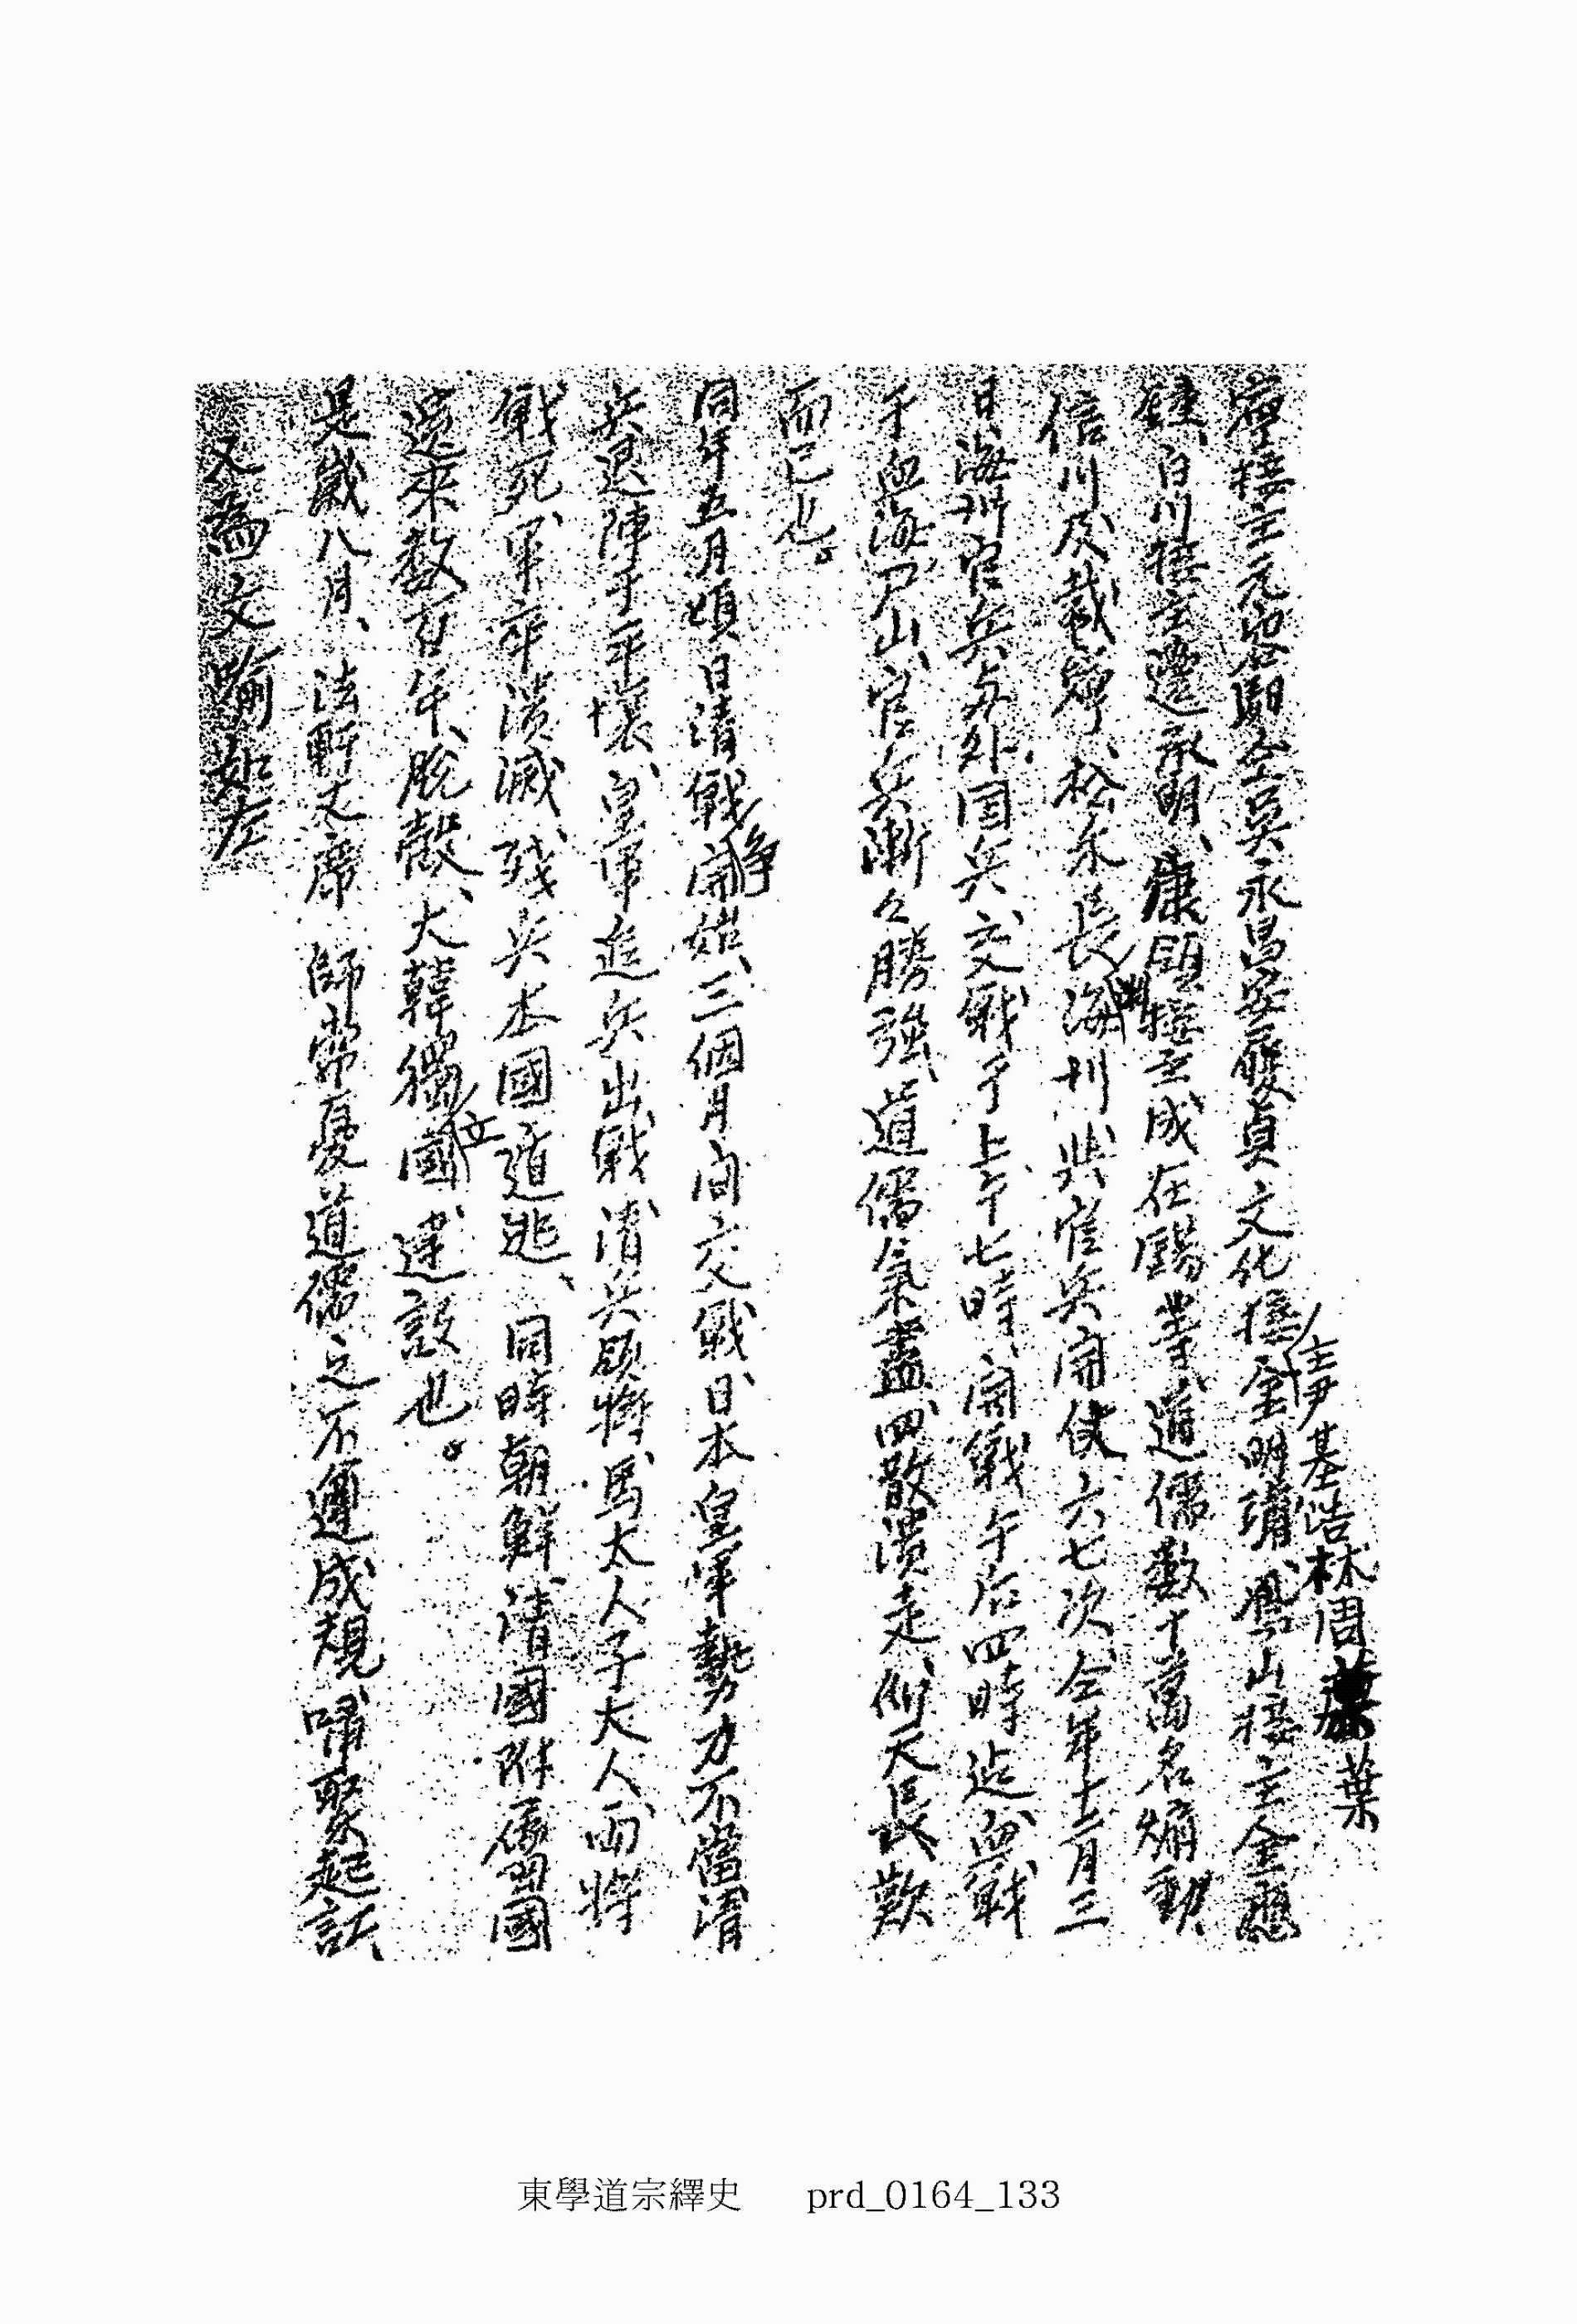 寧接主元容馹全吳永昌安履貞文化接主尹基浩林周葉金明濬鳳山接主金應
鍾白川接主邊承明、康翎接主成在鍚等道儒數十萬名煽動
信川及載寧、松禾長淵海州與官兵開仗六七次、仝年十二月三
日、海州官兵與外國兵交戰于上午七時、開戰午后四時迄血戰
于血海尸山、官兵漸々勝強道儒氣盡四散潰走、仰天長歎
而已也。
同年五月頃日淸戰爭開始、三個月間交戰、日本皇軍勢力不當淸
兵退陣于平壤、皇軍進兵出戰、淸兵領將馬太人子大人両將
戰死、軍卒潰滅、殘兵本國遁逃、同時朝鮮淸國附屬國
還來數百年、脫殼、大韓獨立國建設也。
是歲八月、法軒丈席 師常憂道儒之不遵成規、嘯聚起訴
又為文喩如左
東學道宗繹史 prd_0164_133